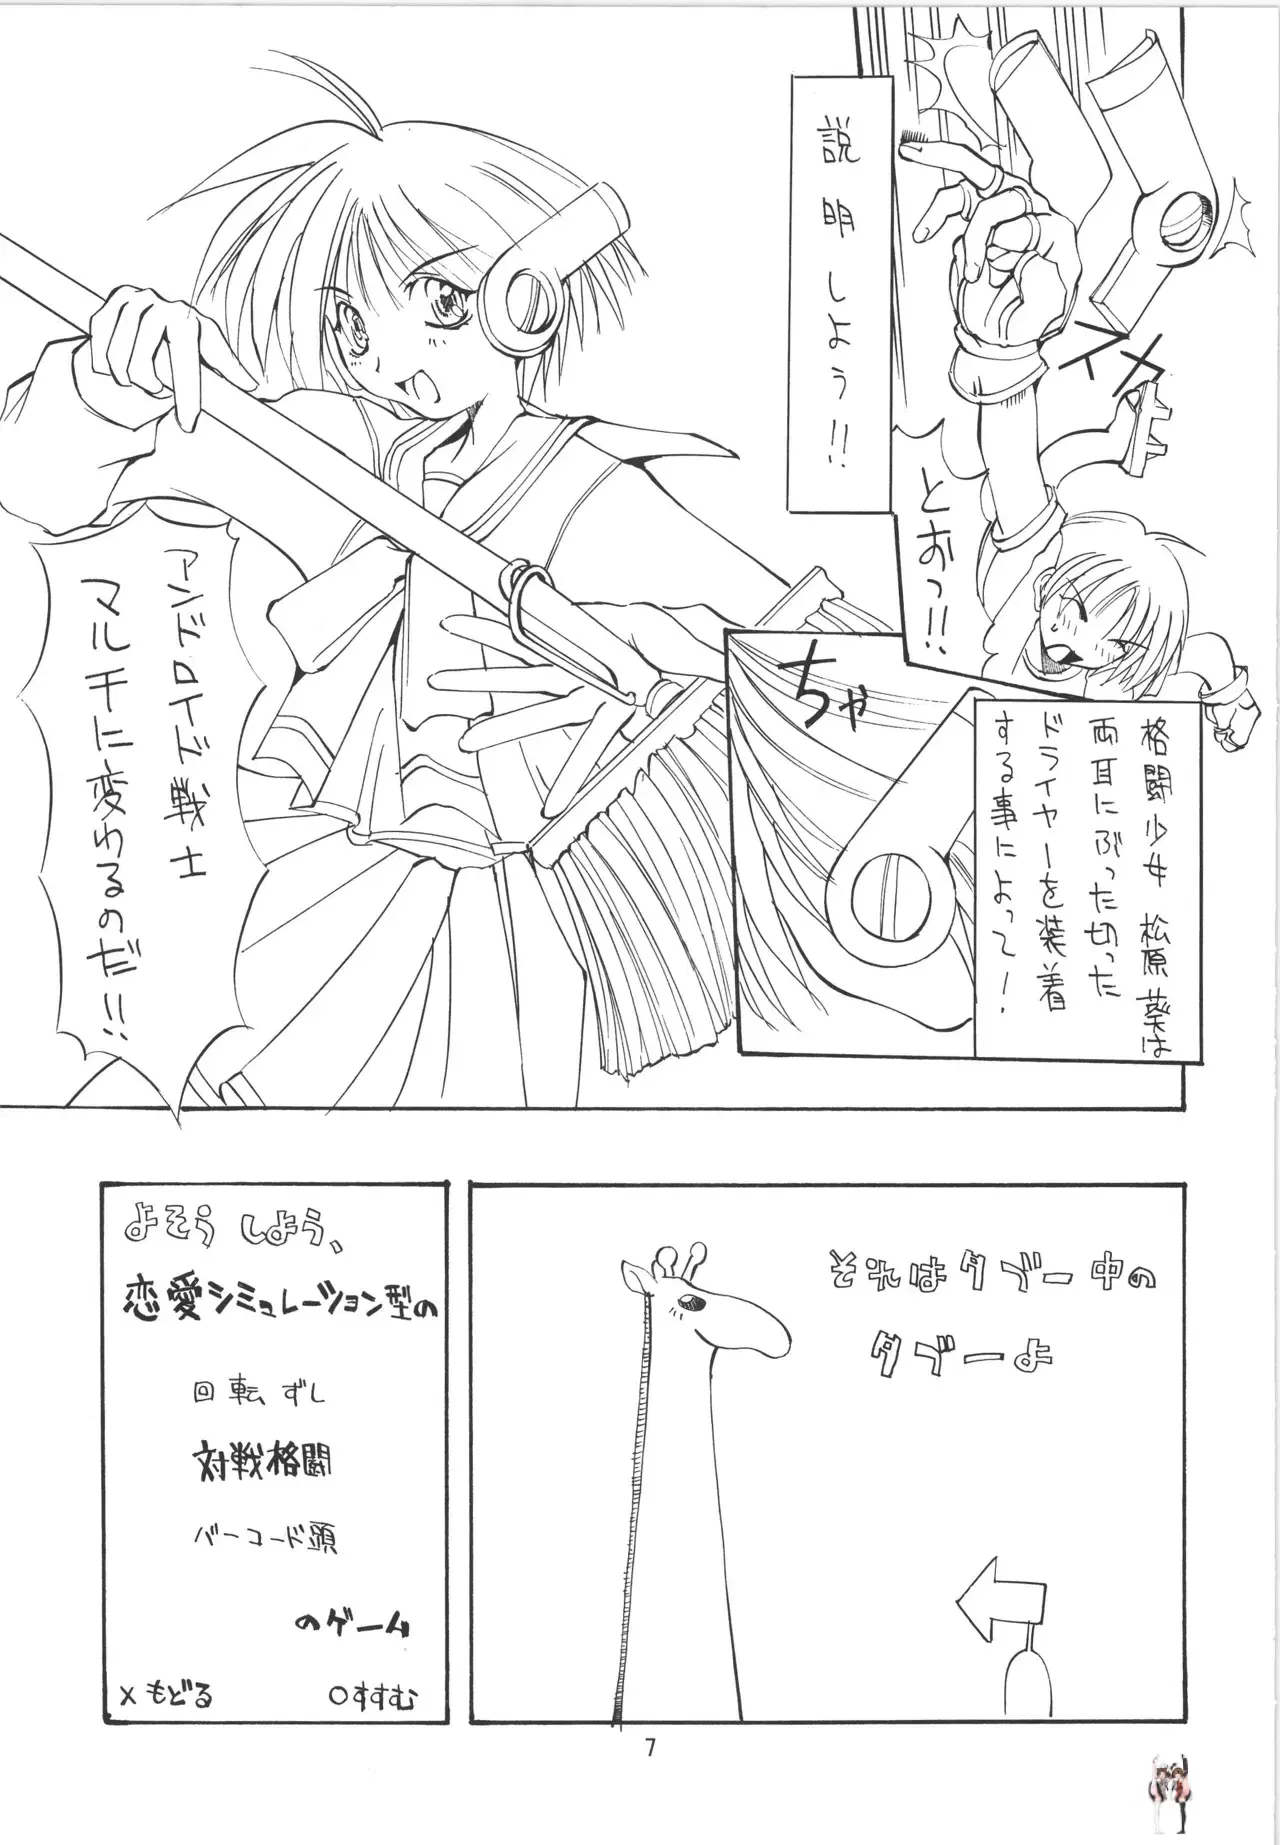 とおっ!!
説明しよう!!
格闘少女 松原葵は
両耳にぶった切った
ドライヤーを装着
する事によって!
ちゃ
アンドロイド戦士
マルチに変わるのだ!!
それはタブー中の
タブーよ
よそうしよう、
恋愛シミュレーション型の
回転ずし
対戦格闘
バーコード頭
のゲーム
×もどる ○すすむ
7